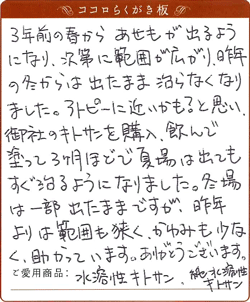 ココロらくがき板
3年前の春から あせもが出るよう
になり、次第に範囲が広がり、昨年
の冬からは出たまま治らなくなり
ました。アトピーに近いかも？と思い、
御社のキトサンを購入、飲んで
塗って3ヶ月ほどで夏場は出ても
すぐ治るようになりました。冬場
は一部出たままですが、昨年
よりは範囲も狭く、かゆみも少な
く、助かっています。ありがとうございます。
ご愛用商品： 水溶性キトサン、 純水溶性
キトサン